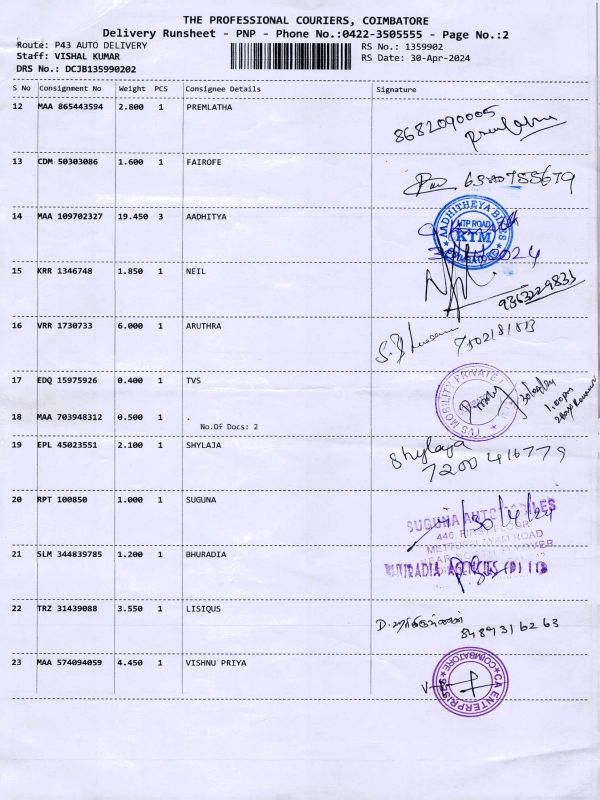 THE PROFESSIONAL COURIERS, COIMBATORE
Delivery Runsheet - PNP - Phone No.:0422-3505555 - Page No.:2
Route: P43 AUTO DELIVERY RS No.: 1359902
Staff: VISHAL KUMAR RS Date: 30-Apr-2024
DRS No.: DCJB135990202
S No Consignment No Weight PCS Consignee Details Signature
12 MAA 865443594 2.800 1 PREMLATHA
8682090005
Premlatha
13 CDM 50303086 1.600 1 FAIROFE
14 MAA 109702327 19.450 3 AADHITYA
AADHITHEYA BIKES
MTP ROAD
KTM
COIMBATORE
15 KRR 1346748 1.850 1 NEIL
9363229833
16 VRR 1730733 6.000 1 ARUTHRA
17 EDQ 15975926 0.400 1 TVS
TVS MOBILITY PRIVATE
30/04/24
1.00pm
18 MAA 703948312 0.500 1 .
No.Of Docs: 2
19 EPL 45023551 2.100 1 SHYLAJA
Shylaja
7200416779
20 RPT 100850 1.000 1 SUGUNA
30/4/24
SUGUNA AUTOMOBILES
446, FIRST FLOOR
METTUPALAYAM ROAD
21 SLM 344839785 1.200 1 BHURADIA
BHURADIA AGENCIES (P) LTD
22 TRZ 31439088 3.550 1 LISIQUS
8489316263
23 MAA 574094059 4.450 1 VISHNU PRIYA
CA ENTERPRISES
COIMBATORE